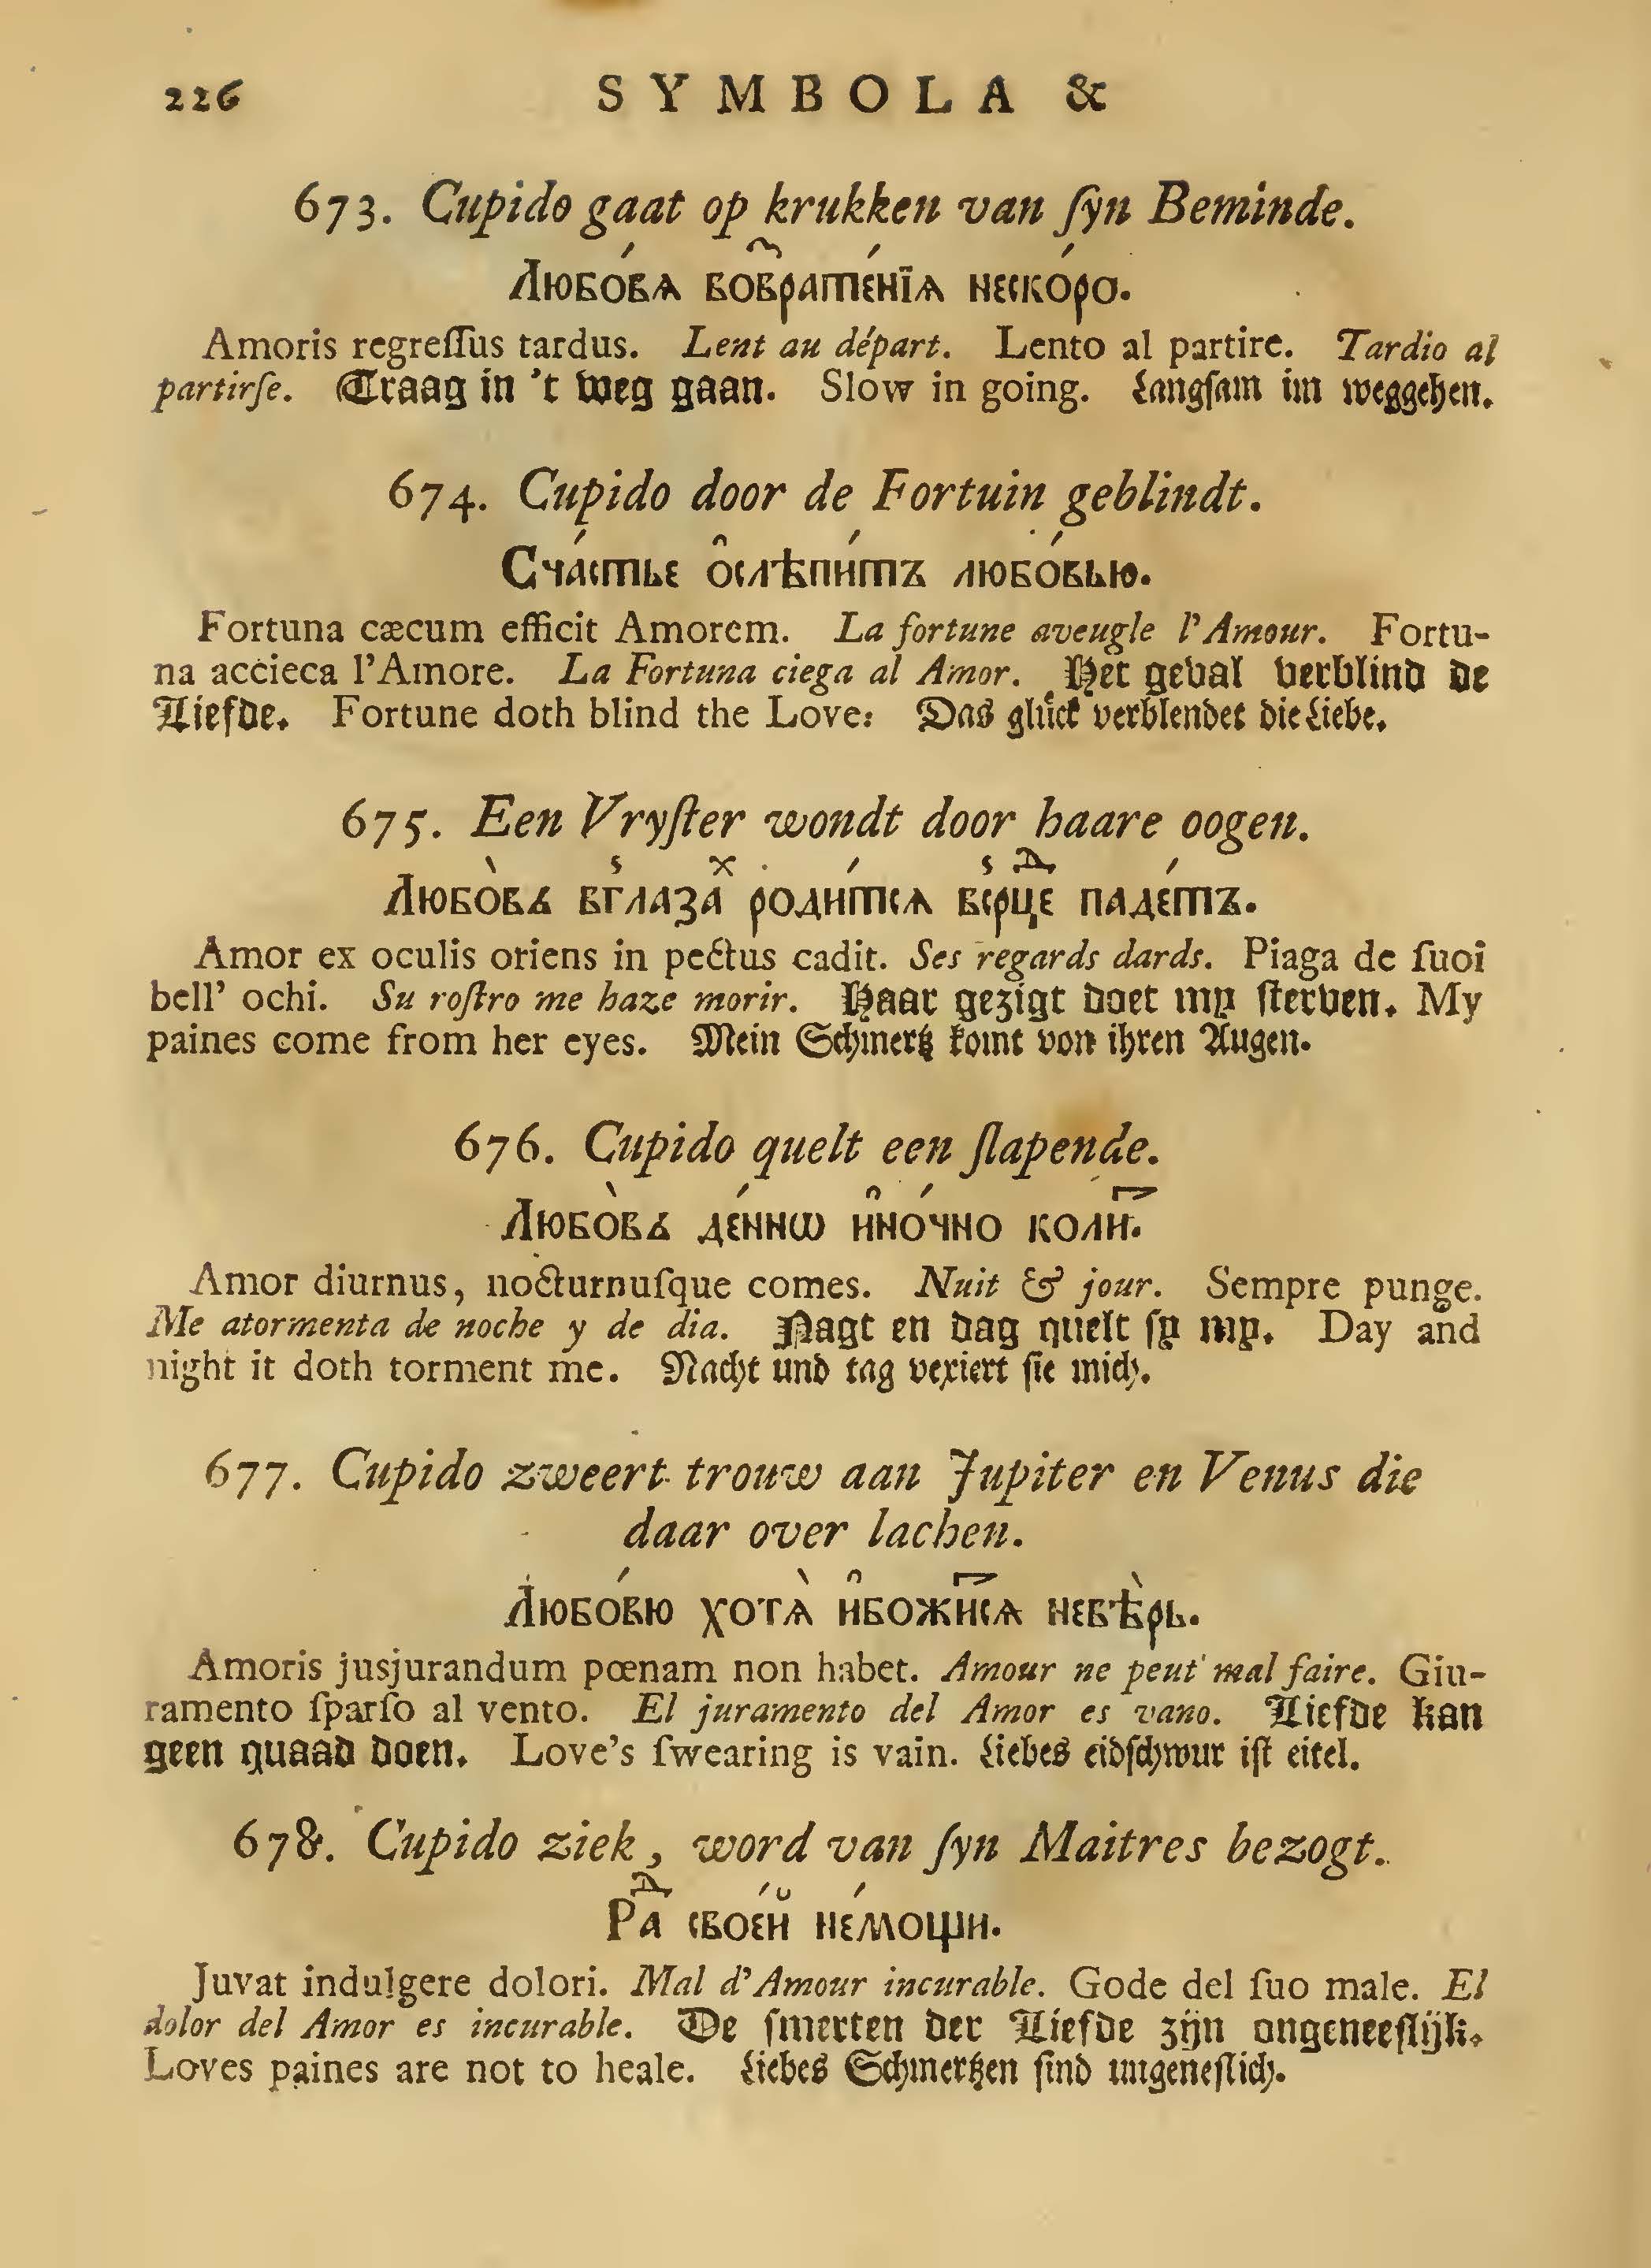 226 SYMBOLA &
673. Cupido gaat op krukken van ſyn Beminde.
Любо́вѧ вовⷬ҇ратше́нїѧ неско́ро.
Amoris regreſſus tardus. Lent au départ. Lento al partire. Tardio al
partirſe. Traag in 't weg gaan. Slow in going. Langſam im weggehen.
674. Cupido door de Fortuin geblindt.
Сча́стье ѻслѣпи́тъ любо́вью.
Fortuna cæcum efficit Amorem. La fortune aveugle l'Amour. Fortu-
na accieca l'Amore. La Fortuna ciega al Amor. Het geval verblind de
Liefde. Fortune doth blind the Love: Das glück verblendet die Liebe.
675. Een Vryſter wondt door haare oogen.
Любо̀вь вглазаⷯ роди́тсѧ всрⷣце паде́тъ.
Amor ex oculis oriens in pectus cadit. Ses regards dards. Piaga de ſuoi
bell' ochi. Su roſtro me haze morir. Haar gezigt doet my ſterven. My
paines come from her eyes. Mein Schmertz komt von ihren Augen.
676. Cupido quelt een ſlapende.
Любо̀вь де́ннѡ ино́чно колиⷮ.
Amor diurnus, nocturnuſque comes. Nuit & jour. Sempre punge.
Me atormenta de noche y de dia. Nagt en dag quelt ſy my. Day and
night it doth torment me. Nacht und tag vexiert ſie mich.
677. Cupido zweert trouw aan Jupiter en Venus die
daar over lachen.
Любо́вю хотѧ̀ ибожиⷮсѧ невѣ̀рь.
Amoris jusjurandum pœnam non habet. Amour ne peut mal faire. Giu-
ramento ſparſo al vento. El juramento del Amor es vano. Liefde kan
geen quaad doen. Love's ſwearing is vain. Liebes eidſchwur iſt eitel.
678. Cupido ziek, word van ſyn Maitres bezogt.
Раⷣ свое́й не́мощи.
Juvat indulgere dolori. Mal d'Amour incurable. Gode del ſuo male. El
dolor del Amor es incurable. De ſmerten der Liefde zijn ongeneeſlijk.
Loves paines are not to heale. Liebes Schmertzen ſind ungeneſlich.